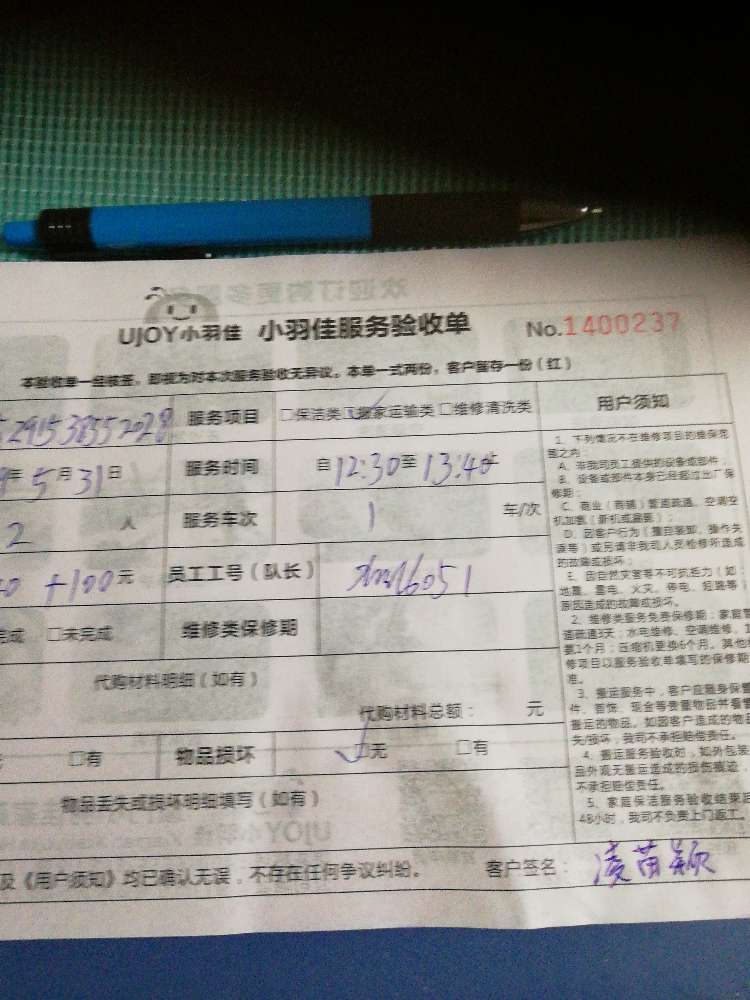 欢迎订购更多服
UJOY小羽佳 小羽佳服务验收单 No.1400237
本验收单一经签至，即视为对本次服务验收无异议。本单一式两份，客户留存一份（红）
291538552028 服务项目 □保洁类☑搬家运输类□维修清洗类 用户须知
年5月31日 服务时间 自12:30至13:40止
2 人 服务车次 1 车/次
+100元 员工工号（队长） 16051
完成 □未完成 维修类保修期
代购材料明细（如有）
代购材料总额： 元
□有 物品损坏 ☑无 □有
物品丢失或损坏明细填写（如有）
及《用户须知》均已确认无误，不存在任何争议纠纷。 客户签名：凌苗颖
1、下列情况不在维修项目的维保范
围之内：
A、非我司员工提供的设备或部件；
B、设备或部件本身已经超过出厂保
修期；
C、商业（商铺）管道疏通、空调空
机加氟（新机或漏氟）；
D、因客户行为（擅自装卸，操作失
误等）或另请非我司人员检修所造成
的故障或损坏；
E、因自然灾害等不可抗拒力（如：
地震、雷电、火灾、停电、短路等）
原因造成的故障或损坏。
2、维修类服务免费保修期：家庭管
道疏通3天；水电维修、空调维修、
1个月；压缩机更换6个月。其他
修项目以服务验收单填写的保修期
准。
3、搬运服务中，客户应随身保管
件、首饰、现金等贵重物品并看管
搬运的物品。如因客户造成的物品
失/损坏，我司不承担赔偿责任。
4、搬运服务验收时，如外包装
品外观无搬运造成的损伤痕迹，
不承担赔偿责任。
5、家庭保洁服务验收结束后
48小时，我司不负责上门返工。